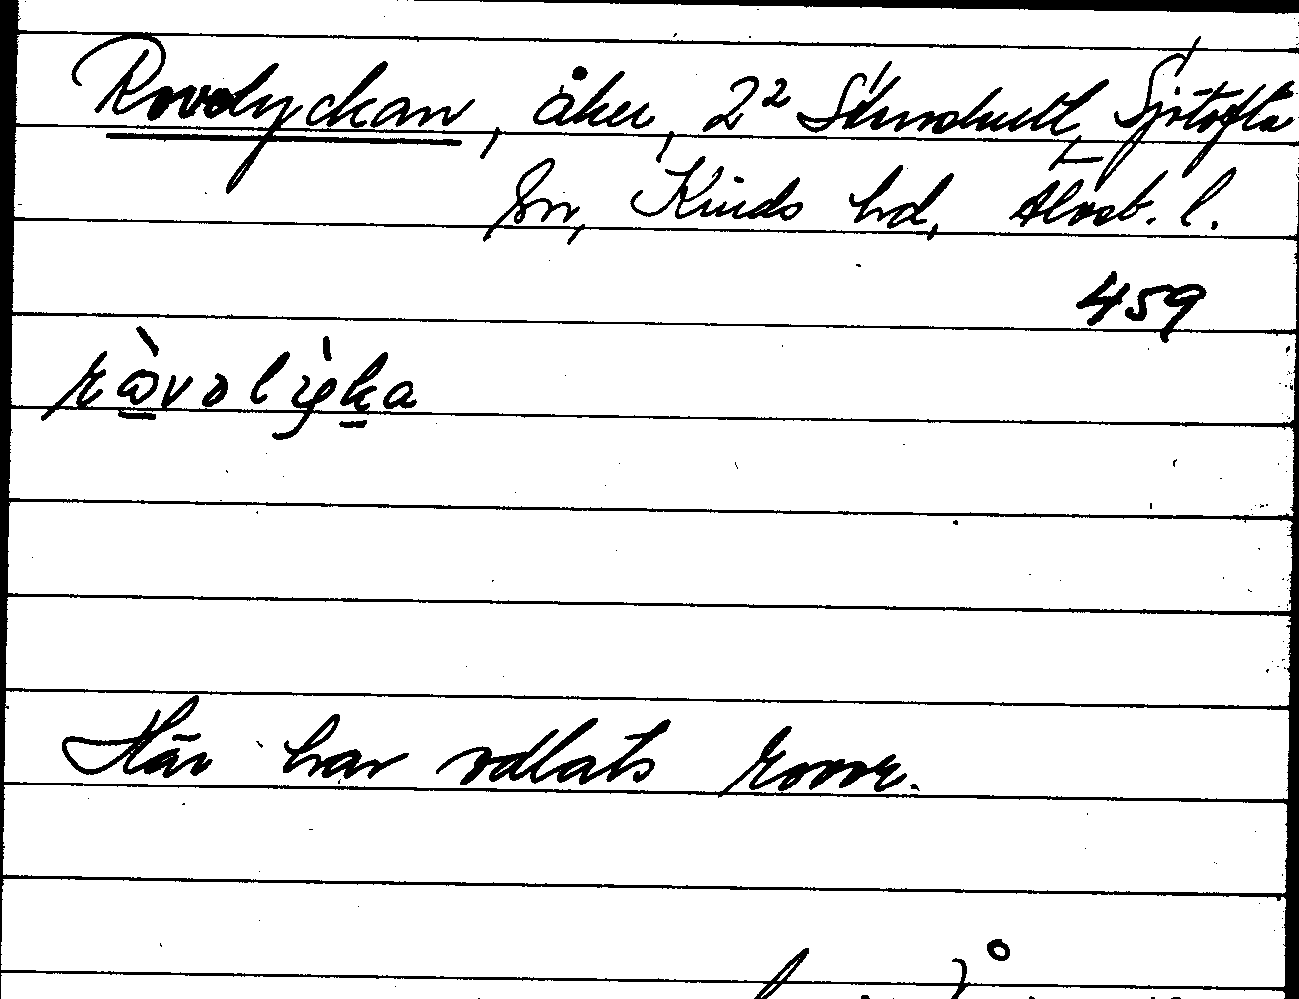 Rovolyckan, åker, 2² Stenshult, Sjötofta
sn, Kinds hd, Älvsb. l.
459
rò̠volỳk̠a
Här har odlats rovor.